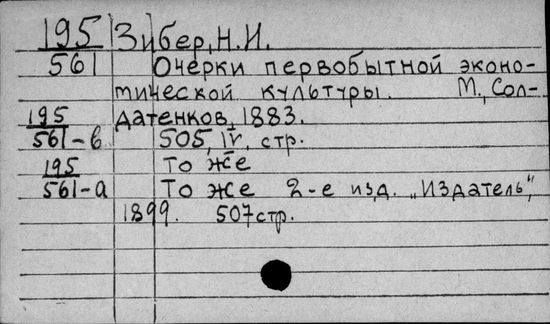 195 Зибер, Н.И.
561 Очерки первобытной эконо-
мической культуры. М., Сол-
195 датенков, 1883.
561-в 505, IV, стр.
195 То же
561-а То же 2-е изд. „Издатель",
1899. 507 стр.